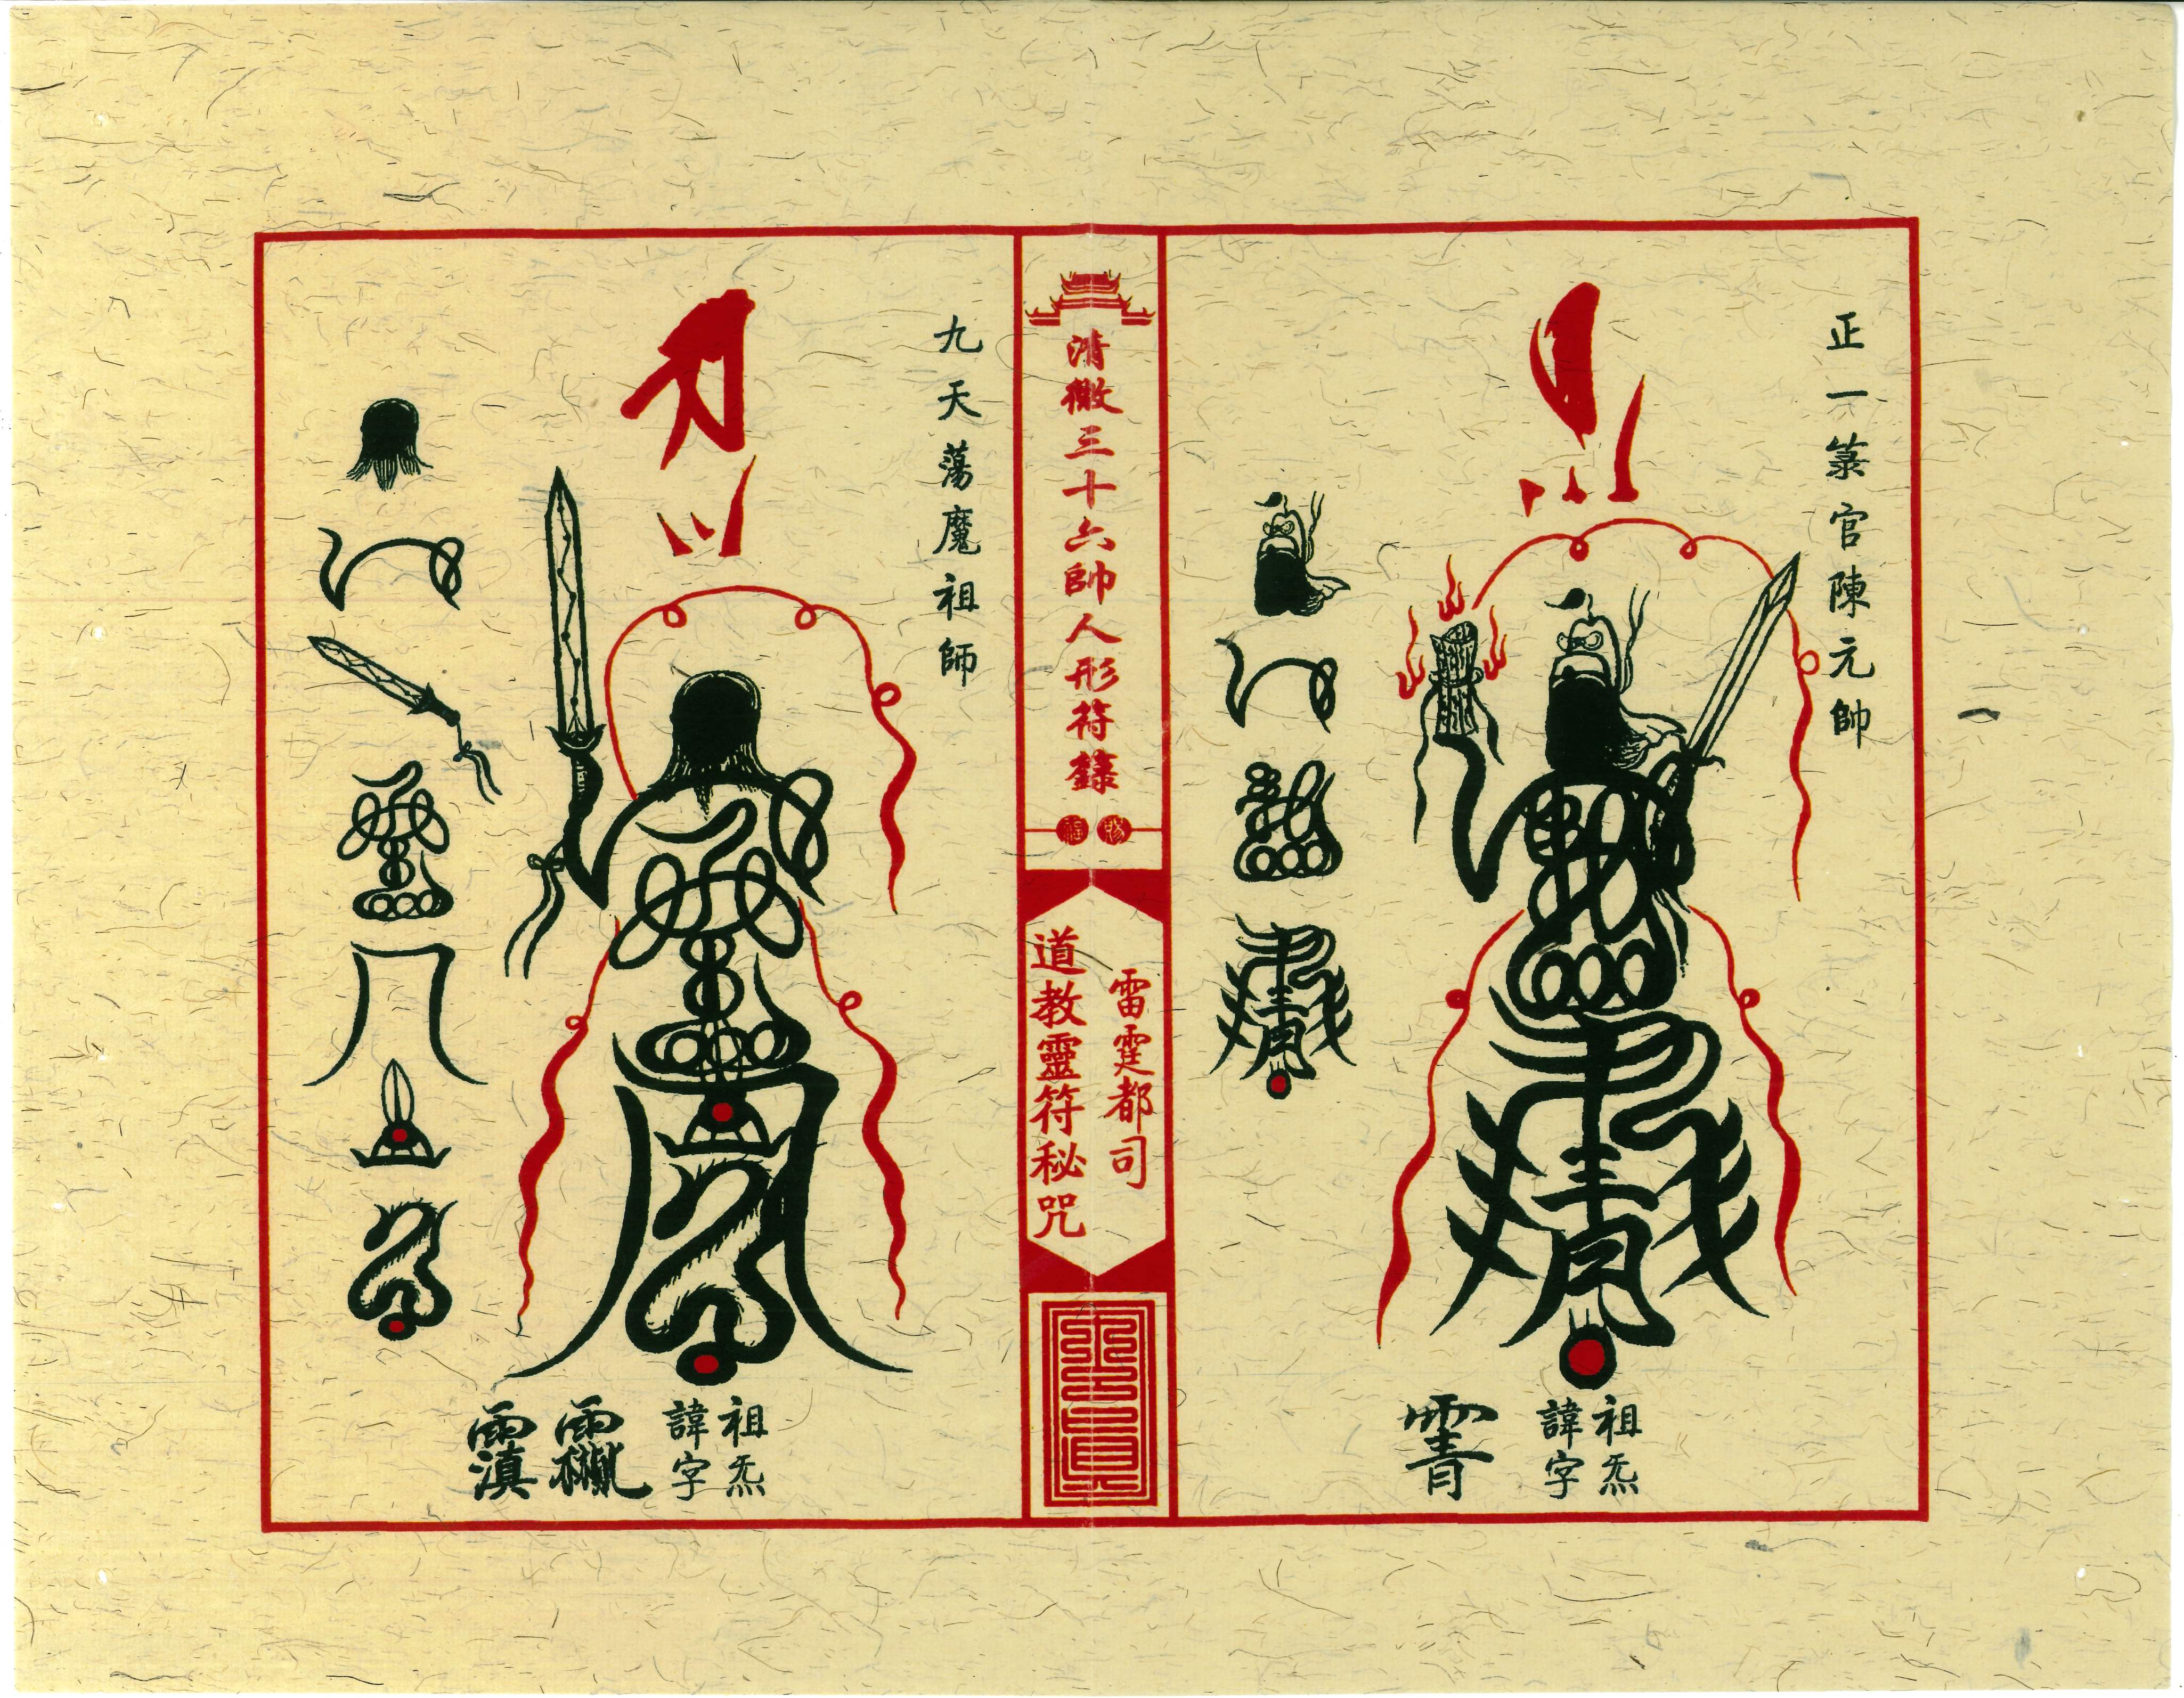 正一箓官陳元帥
祖炁
諱字
清微三十六帥人形符籙
賜福
雷霆都司
道教靈符秘咒
九天蕩魔祖師
祖炁
諱字